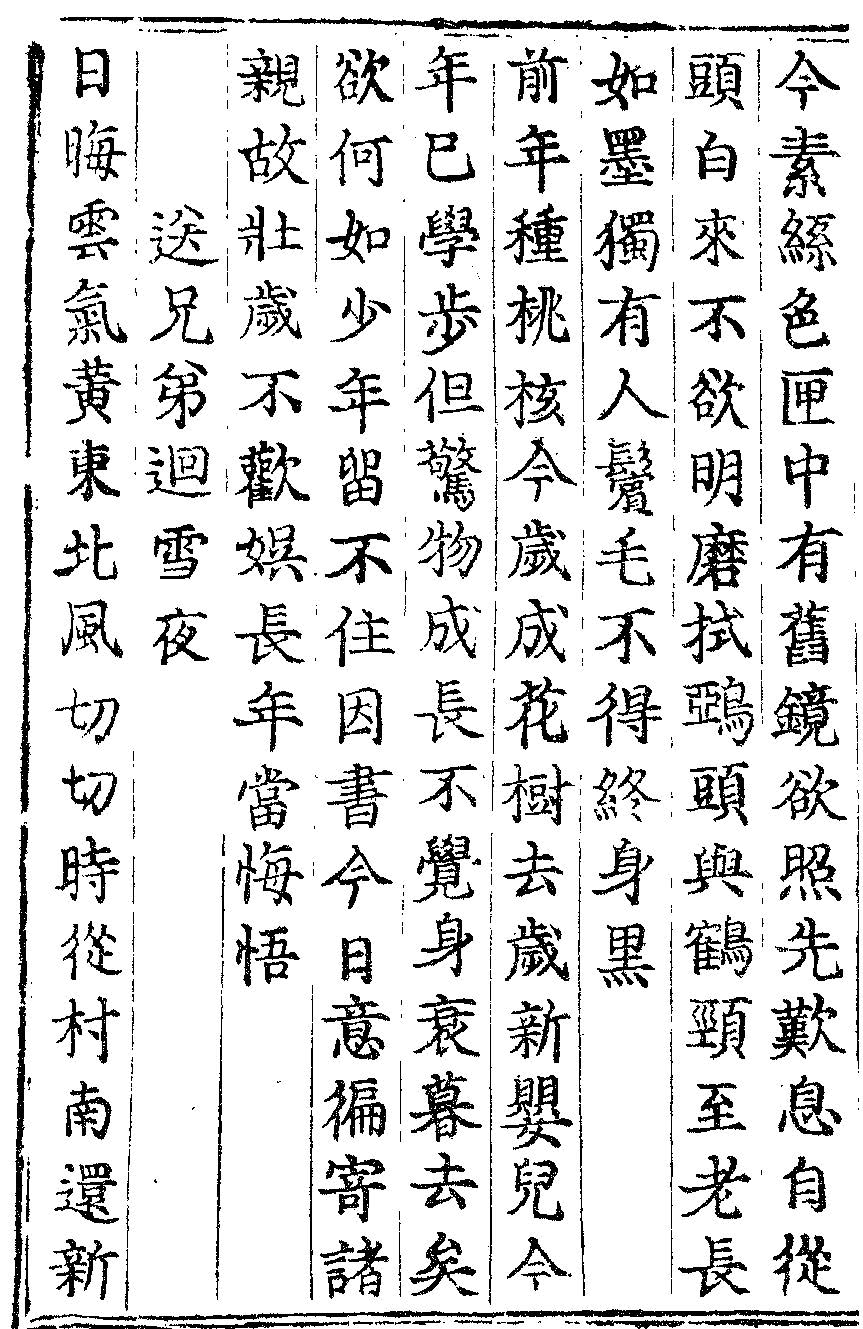 今素絲色匣中有舊鏡欲照先歎息自從
頭白來不欲明磨拭鵶頭與鶴頸至老長
如墨獨有人鬢毛不得終身黒
前年種桃核今歲成花樹去歲新嬰兒今
年已學步但驚物成長不覺身衰暮去矣
欲何如少年留不住因書今日意徧寄諸
親故壯歲不歡娯長年當悔悟
送兄弟迴雪夜
日晦雲氣黄東北風切切時從村南還新